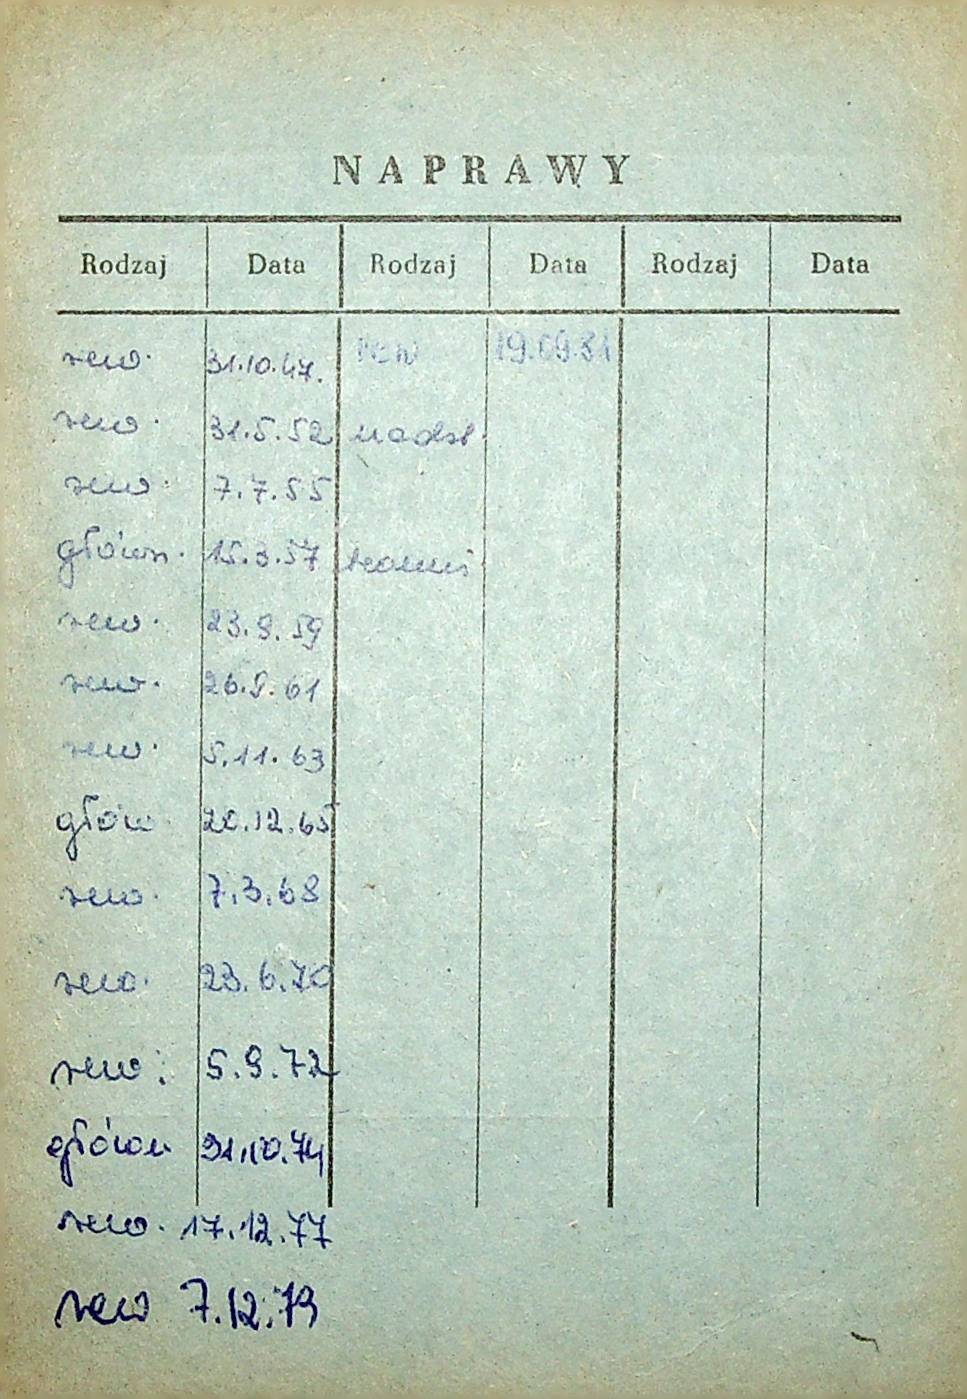 NAPRAWY
Rodzaj Data Rodzaj Data Rodzaj Data
rew. 31.10.47. rew 19.09.81
rew. 31.5.52
rew. 7.7.55
główn. 15.3.57
rew. 23.9.59
rew. 26.9.61
rew. 5.11.63
głów 20.12.65
rew. 7.3.68
rew. 23.6.70
rew. 5.9.72
główn 31.10.74
rew. 17.12.77
rew 7.12.79